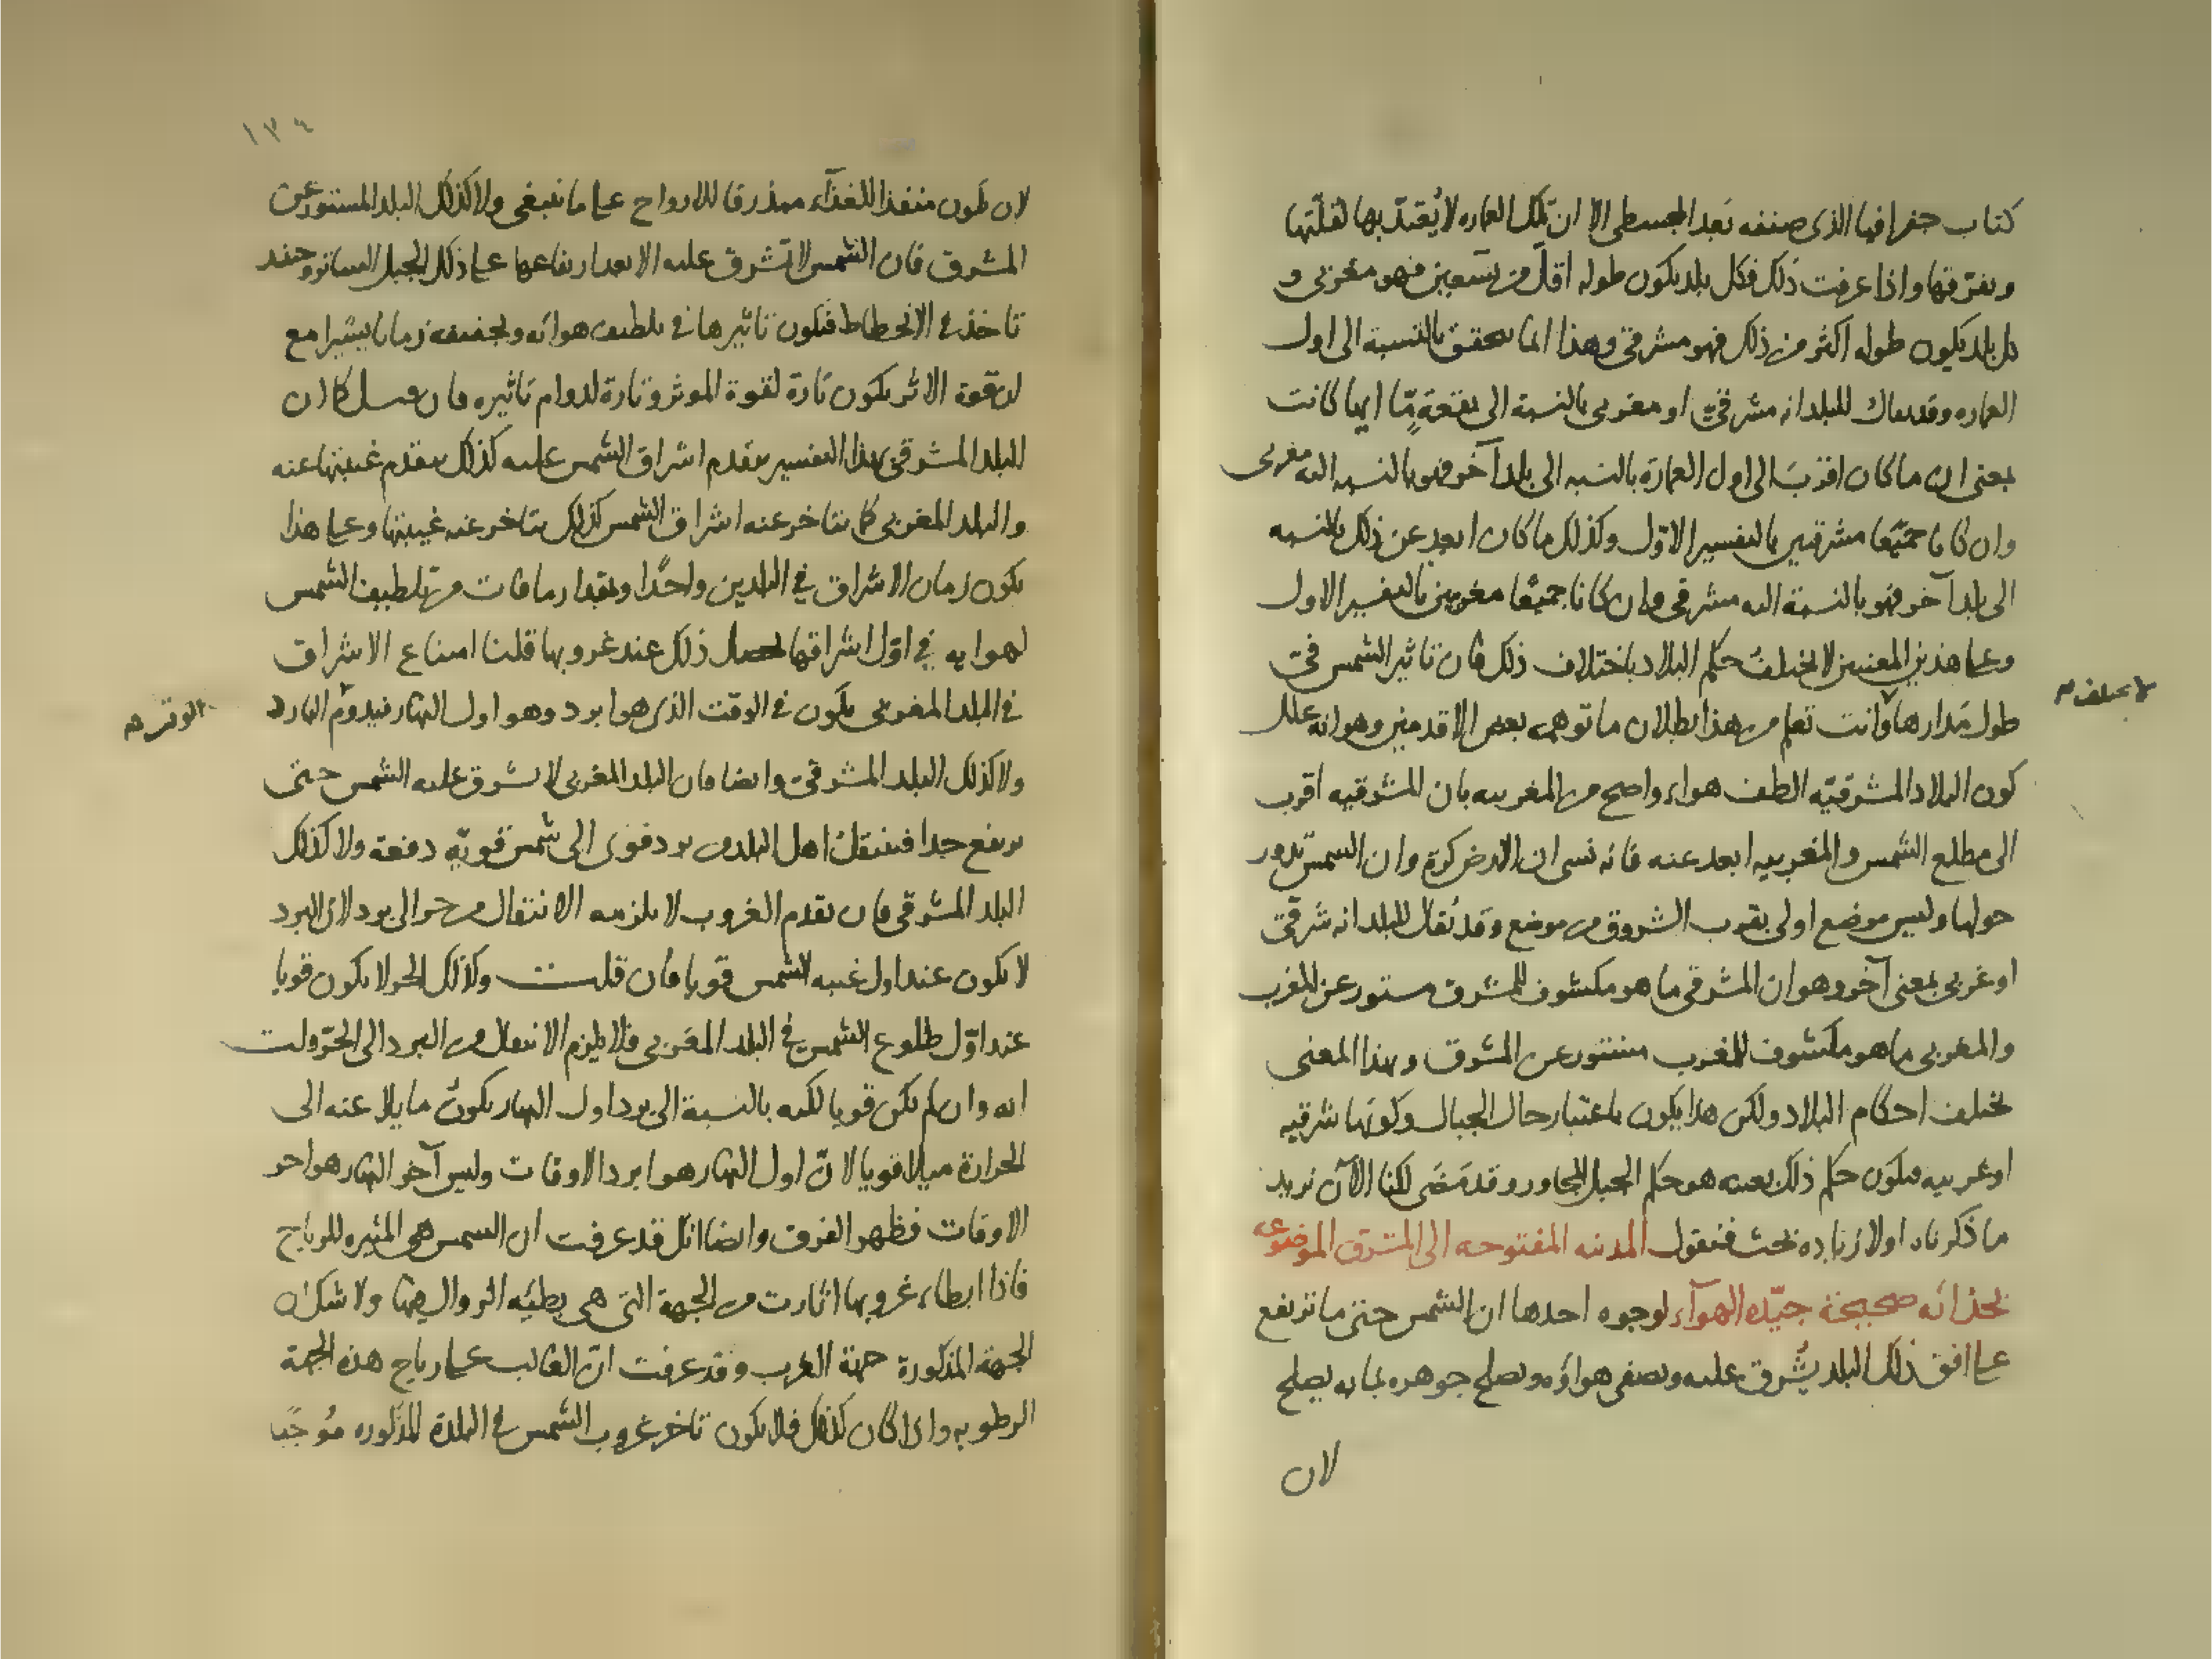 كتاب جغرافيا الذى صنفه بعد المجسطى الا ان تلك العماره لا يُعْتدّ بها لقلّتها
وبعد فيها واذا عرفت ذلك فكل بلد يكون طوله اقلّ من تسعين فهو مغربى و
كل بلد يكون طوله اكثر من ذلك فهو مشرقى وهذا انما يتحقق بالنسبة الى اول
العماره وقد يقال للبلد انه مشرقىّ او مغربى بالنسبة الى بقعةٍ مّا ايها كانت
بمعنى ان ما كان اقربَ الى اول العمارة بالنسبه الى بلد آخر فهو بالنسبه اليه مغربى
وان كانا جميعًا مشرقيين بالتفسير الاوّل وكذلك ما كان ابعد عن ذلك بالنسبه
الى بلد آخر فهو بالنسبة اليه مشرقى وان كانا جميعًا مغربيين بالتفسير الاول
وعلى هذين المعنيين لا يختلفُ حكم البلاد باختلاف ذلك فان تاثير الشمس فى
طول مَدارها وانت تعلم من هذا بطلان ما توهمه بعض الاقدمين وهو انه علل
لا يختلف
كون البلاد المشرقيّه الطف هواء واصح من المغربيه بان المشرقيه اقرب
الى مطلع الشمس والمغربيه ابعد عنه فانه نسى ان الارض كرة وان الشمس تدور
حولها وليس موضع اولى بقرب الشروق من موضع وقد يُقال للبلد انه شرقىّ
او غربى بمعنى آخر وهو ان المشرقى ما هو مكشوف للمشرق مستور عن المغرب
والمغربى ما هو مكشوف للمغرب مستور عن المشرق وبهذا المعنى
تختلف احكام البلاد ولكن هذا يكون باعتبار حال الجبال وكونها شرقيه
او غربيه فيكون حكم ذلك بعينه هو حكم الجبل المجاور وقد مَضَى لكنا الآن نريد
ما ذكرناه اولا زياده بحث فنقول المدينه المفتوحه الى المشرق الموضوعى
بحذائه صحيحة جيّده الهوآء لوجوه احدها ان الشمس حتى ما ترتفع
على افق ذلك البلد يُشرق عليه ويصفى هواؤه ويصلح جوهره بما به يصلح
لان
١٣٤
لان يكون منفذا للغذآء مبذرقا للارواح على ما ينبغى ولا كذلك البلد المستور عن
المشرق فان الشمس لا تشرق عليه الا بعد ارتفاعها على ذلك الجبل الساتر وحينئد
تاخذ فى الانحطاط فيكون تاثيرها فى تلطيف هوائه وتجفيفه زمانا يسيرا مع
ان قوة الاثر يكون تارة لقوة الموثر وتارة لدوام تاثيره فان قيل كما ان
البلد المشرقى بهذا التفسير يتقدم اشراق الشمس عليه كذلك يتقدم غيبتها عنه
والبلد المغربى كما يتاخر عنه اشراق الشمس كذلك يتاخر عنه غيبتها وعلى هذا
يكون زمان الاشراق فى البلدين واحدًا وبمقدار ما فات من تلطيف الشمس
لهوايه فى اوّل اشراقها يحصل ذلك عند غروبها قلنا امتناع الاشراق
فى البلد المغربى يكون فى الوقت الذى هو ابرد وهو اول النهار فيدوم البارد
الوقر
ولا كذلك البلد المشرقى وايضا فان البلد المغربى لا تشرق عليه الشمس حتى
ترتفع جدا فينتقل اهل البلد من برد قوى الى شمس قويّه دفعة ولا كذلك
البلد المشرقى فان تقدم الغروب لا يلزمه الانتقال من حر الى برد لان البرد
لا يكون عند اول غيبه الشمس قويا فان قلت وكذلك الحر لا يكون قويا
عند اوّل طلوع الشمس فى البلد المغربى فلا يلزم الانتقال من البرد الى الحرّ قلت
انه وان لم يكن قويا لكنه بالنسبة الى برد اول النهار يكون مايلا عنه الى
الحرارة ميلا قويا لانّ اول النهار هو ابرد الاوقات وليس آخر النهار هو احر
الاوقات فظهر الفرق وايضا انك قد عرفت ان الشمس هى المثيره للرياح
فاذا ابطاء غروبها اثارت من الجهة التى هى بطيئه الزوال عنها ولا شك ان
الجهة المذكورة جهة الغرب وقد عرفت انّ الغالب على رياح هذه الجهة
الرطوبه واذا كان كذلك فلا يكون تاخر غروب الشمس فى البلدة المذكوره مُوجبًا